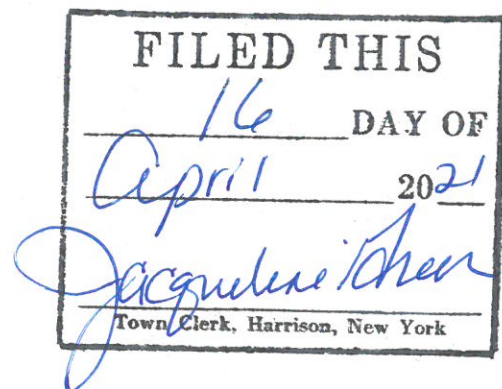 FILED THIS
16 DAY OF
April 2021
Jacqueline
Town Clerk, Harrison, New York